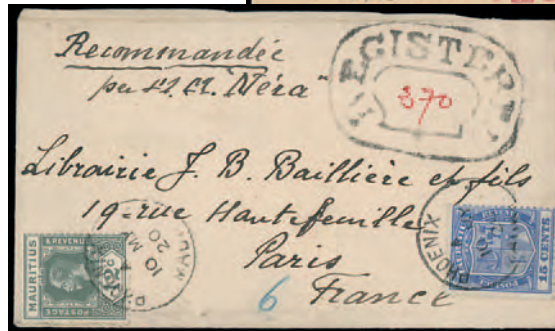 Recommandée
per "S. S. Néra"
REGISTERED
370
Librairie J. B. Baillière et fils
19-rue Hautefeuille
Paris
France
6
MAURITIUS
POSTAGE & REVENUE
PHOENIX
10 MY
20
PHOENIX
15 CENTS